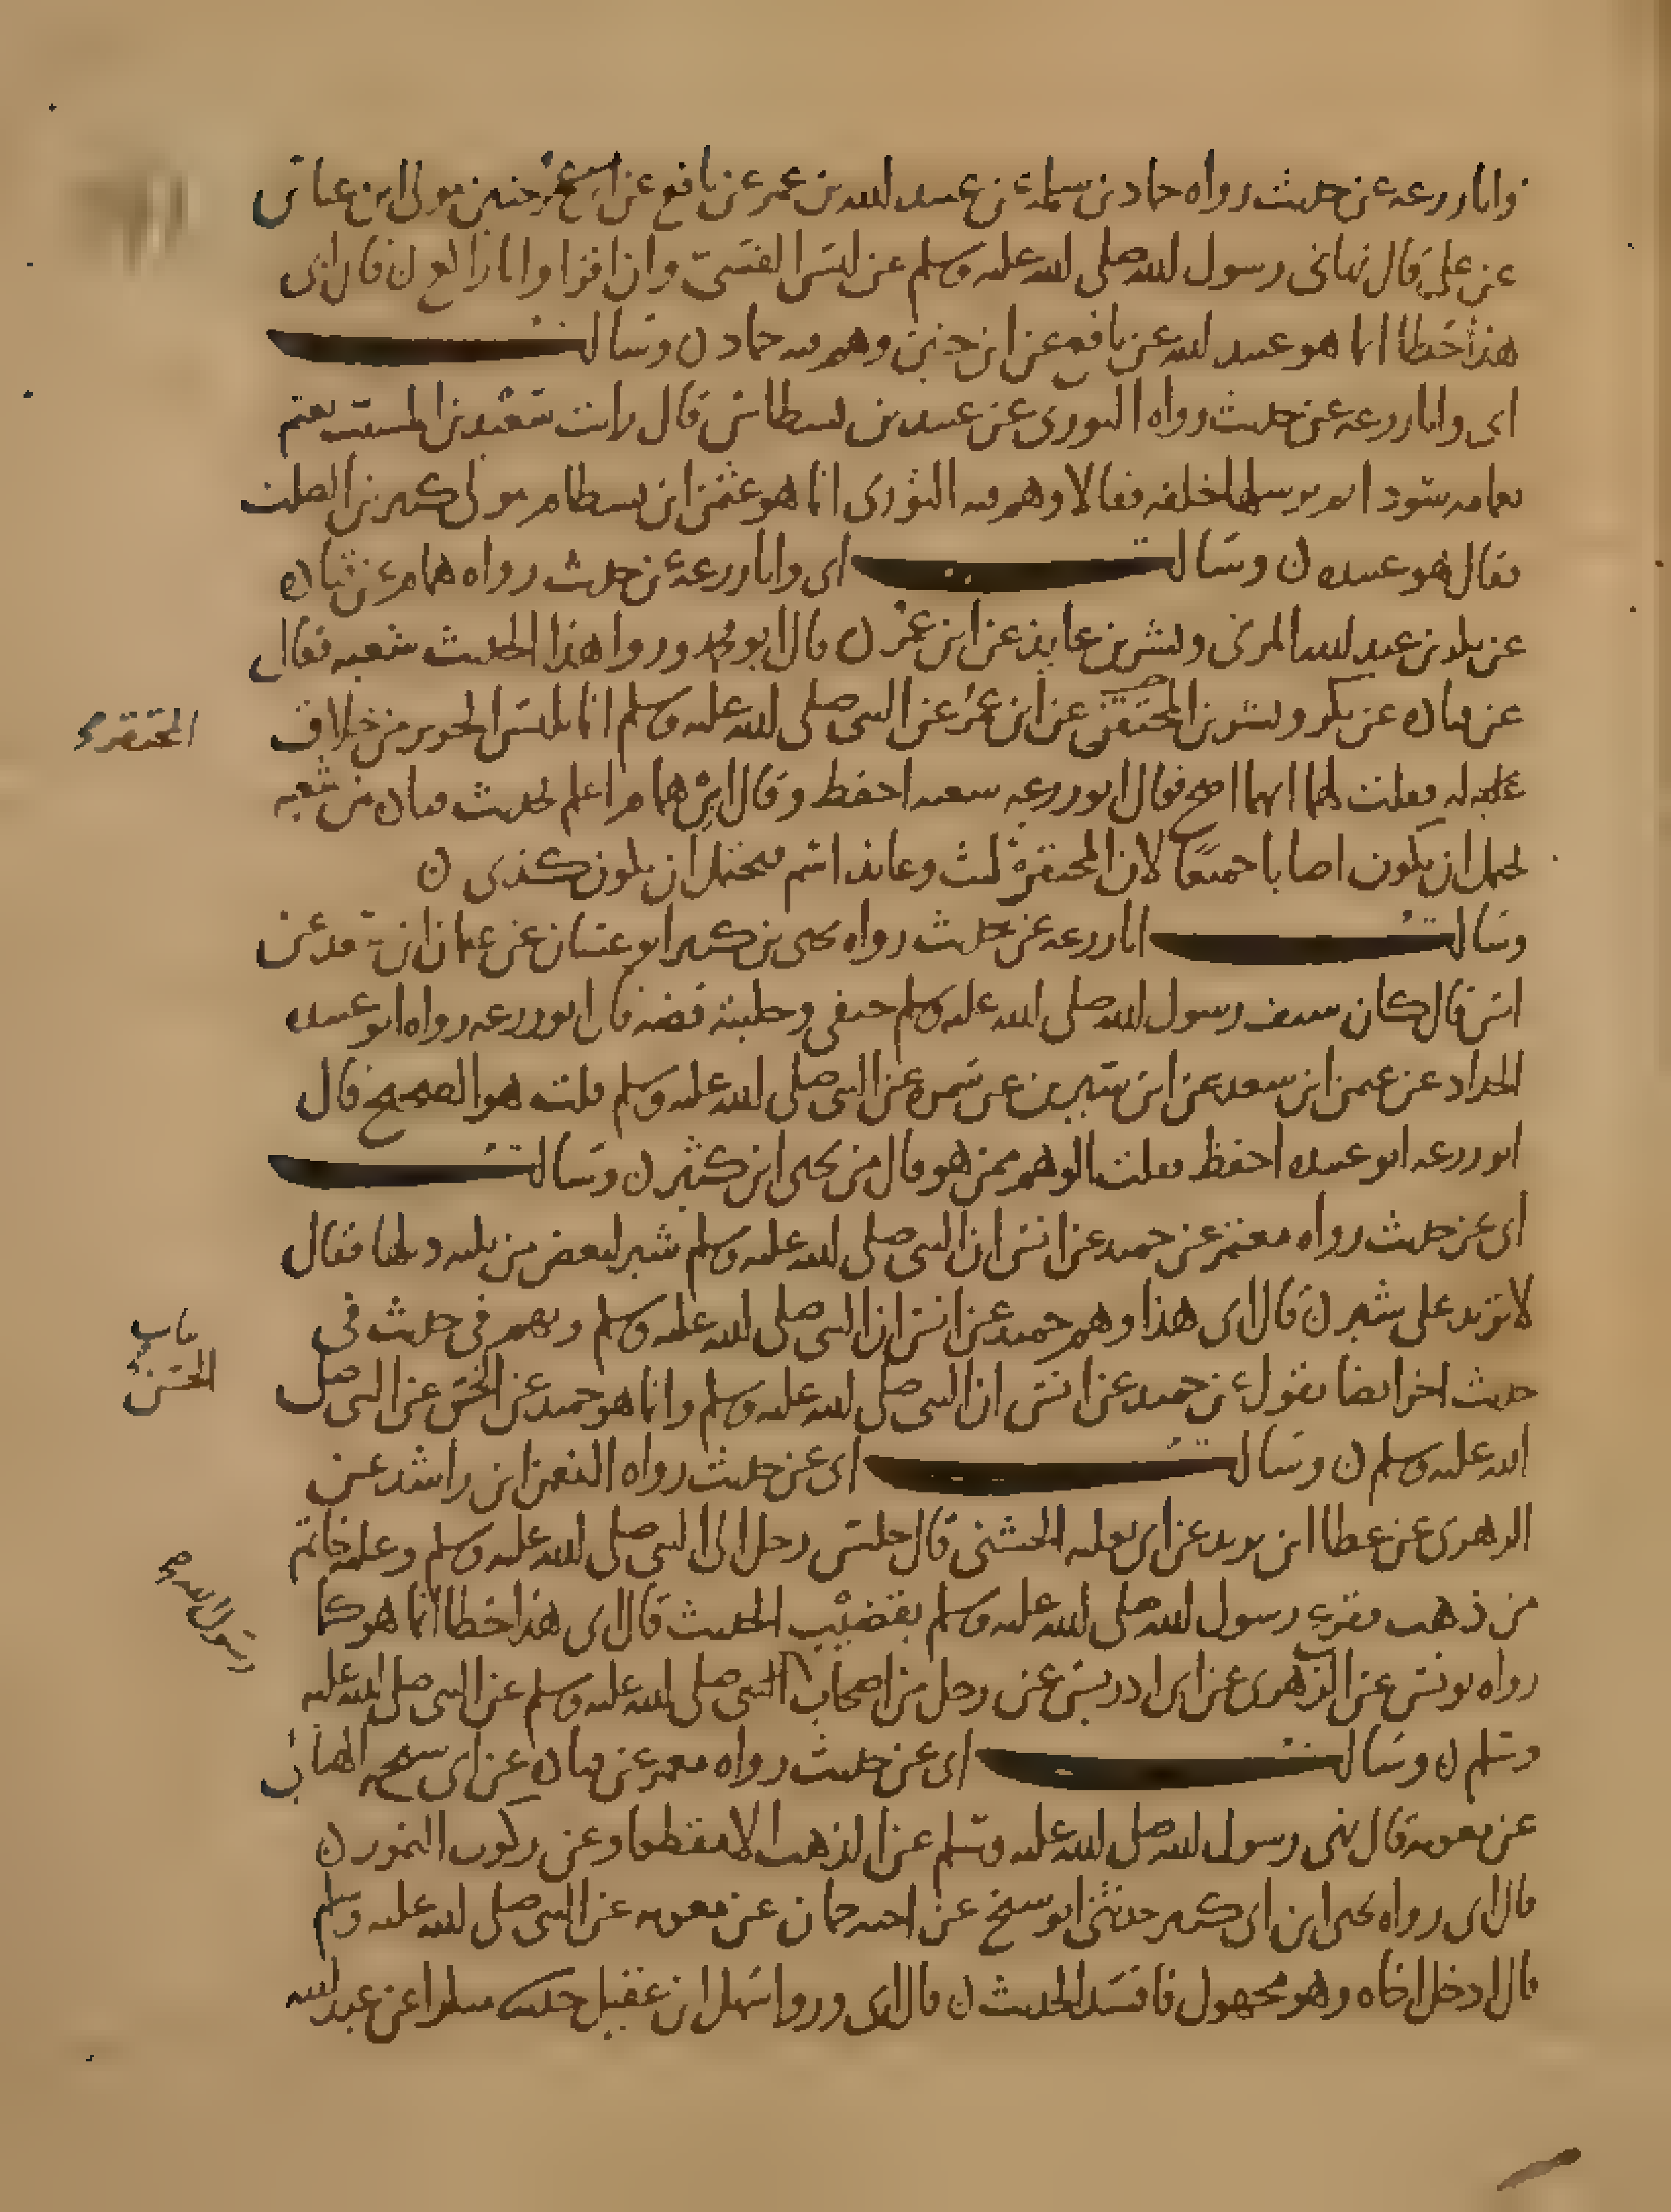 وابا زرعه عن حديث رواه حماد بن سلمه عن عبيد الله بن عمر عن نافع عن حنين مولى ابن عباس
عن علي قال نهاني رسول الله صلى الله عليه وسلم عن لبس القسي وان اقرا وانا راكع ن قال ابي
هذا خطا انما هو عبيد الله عن نافع عن ابن حنين وهم فيه حماد ن وسالت
ابي وابا زرعه عن حديث رواه الثوري عن عبيد بن بسطاس قال رايت سعيد بن المسيب يعتم
بعمامه سودا ثم يرسلها خلفه فقالا وهم فيه الثوري انما هو عثمن ابن بسطاس مولى كثير بن الصلت
فقال هو عبيد ن وسالت ابي وابا زرعه عن حديث رواه همام عن قتاده
عن بكر بن عبد الله المزني وبشر بن عايذ عن ابن عمر ن قال ابو محمد وروا هذا الحديث شعبه فقال
عن قتاده عن بكر وبشر بن المحتفز عن ابن عمر عن النبي صلى الله عليه وسلم انما يلبس الحرير من خلاق
المحتفز صح
له فقلت لهما ايهما اصح فقال ابو زرعه شعبه احفظ وقال ابي همام اعلم بحديث قتاده من شعبه
يحتمل ان يكون اصابا جميعا لان المحتفز لقب وعايذ اسم فيحتمل ان يكون كذى ن
وسالت ابا زرعه عن حديث رواه يحيى بن كثير ابو غسان عن عثمان ابن سعد عن
انس قال كان سيف رسول الله صلى الله عليه وسلم حنفي وحليته فضه قال ابو زرعه رواه ابو عبيده
الحداد عن عثمن ابن سعد عن ابن سيرين عن سمره عن النبي صلى الله عليه وسلم قلت هو الصحيح قال
ابو زرعه ابو عبيده احفظ فقلت الوهم ممن هو قال من يحيى ابن كثير ن وسالت
ابي عن حديث رواه معتمر عن حميد عن انس ان النبي صلى الله عليه وسلم شبر لبعض من يليه ولها فقال
لا تزيد على شبر ن قال ابي هذا وهم حميد عن انس ان النبي صلى الله عليه وسلم ويهم في حديث في
باب
الحسن
حديث اخر ايضا يقول عن حميد عن انس ان النبي صلى الله عليه وسلم وانما هو حميد عن الحسن عن النبي صلى
الله عليه وسلم ن وسالت ابي عن حديث رواه النعمن ابن راشد عن
الزهري عن عطا ابن يزيد عن ابي ثعلبه الخشني قال جلس رجل الى النبي صلى الله عليه وسلم وعليه خاتم
من ذهب فقرع رسول الله صلى الله عليه وسلم بقضيب الحديث قال ابي هذا خطا انما هو كما
رسول الله صح
رواه يونس عن الزهري عن ابي ادريس عن رجل من اصحاب النبي صلى الله عليه وسلم عن النبي صلى الله عليه
وسلم ن وسالت ابي عن حديث رواه معمر عن قتاده عن ابي شيخ الهنائي
عن معويه قال نهى رسول الله صلى الله عليه وسلم عن الذهب الا مقطعا وعن ركوب النمور ن
قال ابي رواه يحيى ابن ابي كثير حدثني ابو شيخ عن اخيه حمان عن معويه عن النبي صلى الله عليه وسلم
قال ادخل اخاه وهو مجهول فافسد الحديث ن قال ابي وروا سهل ابن عقيل عن عبد الله